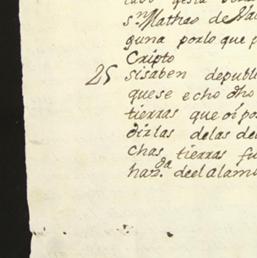 sⁿ Matheo de
guna por lo que p
Cripto
25 Sisaben depubl
quese echo dho
tierras que oi po
dizlas delas de
chas tierras fu
haz.ᵈᵃ deel alam